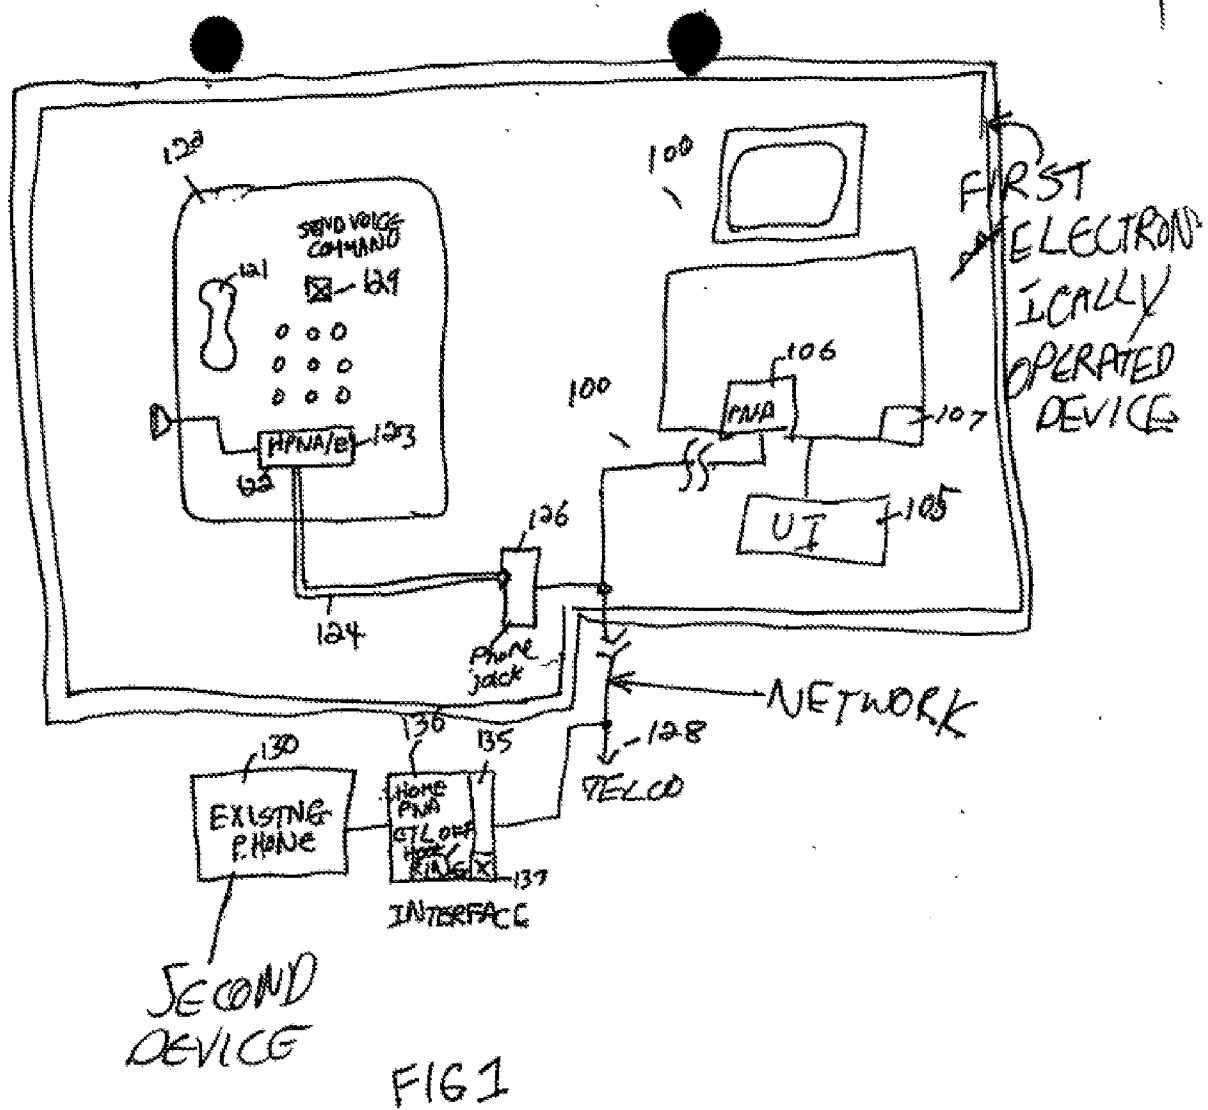 120
SEND VOICE
COMMAND
121
129
HPNA/E
123
122
124
126
Phone
jack
100
106
PNA
107
UI
105
100
FIRST
ELECTRON-
ICALLY
OPERATED
DEVICE
NETWORK
128
TELCO
130
EXISTNG
PHONE
136
135
HOME
PNA
CTL OFF
HOOK
RING
X
137
INTERFACE
SECOND
DEVICE
FIG 1